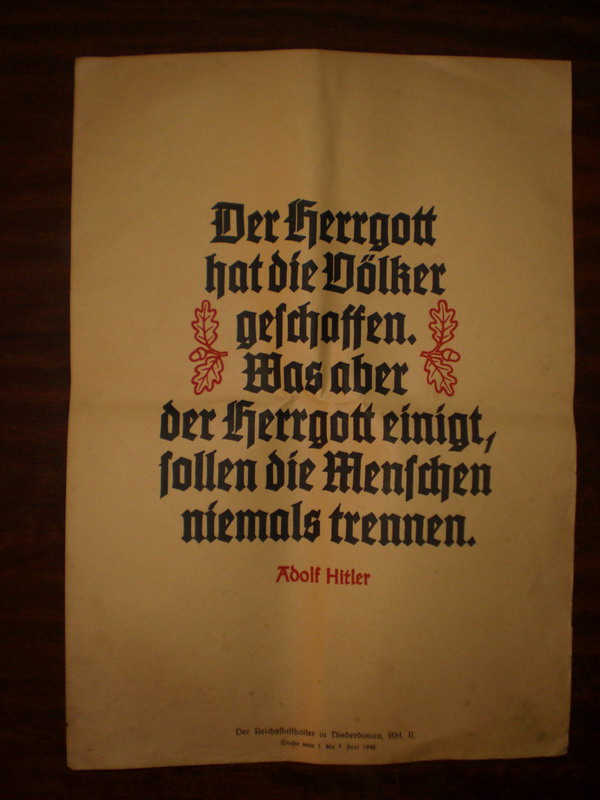 Der Herrgott
hat die Völker
geschaffen.
Was aber
der Herrgott einigt,
sollen die Menschen
niemals trennen.
Adolf Hitler
Der Reichsstatthalter in Niederdonau, Abt. II.
Woche vom 1. bis 7. Juni